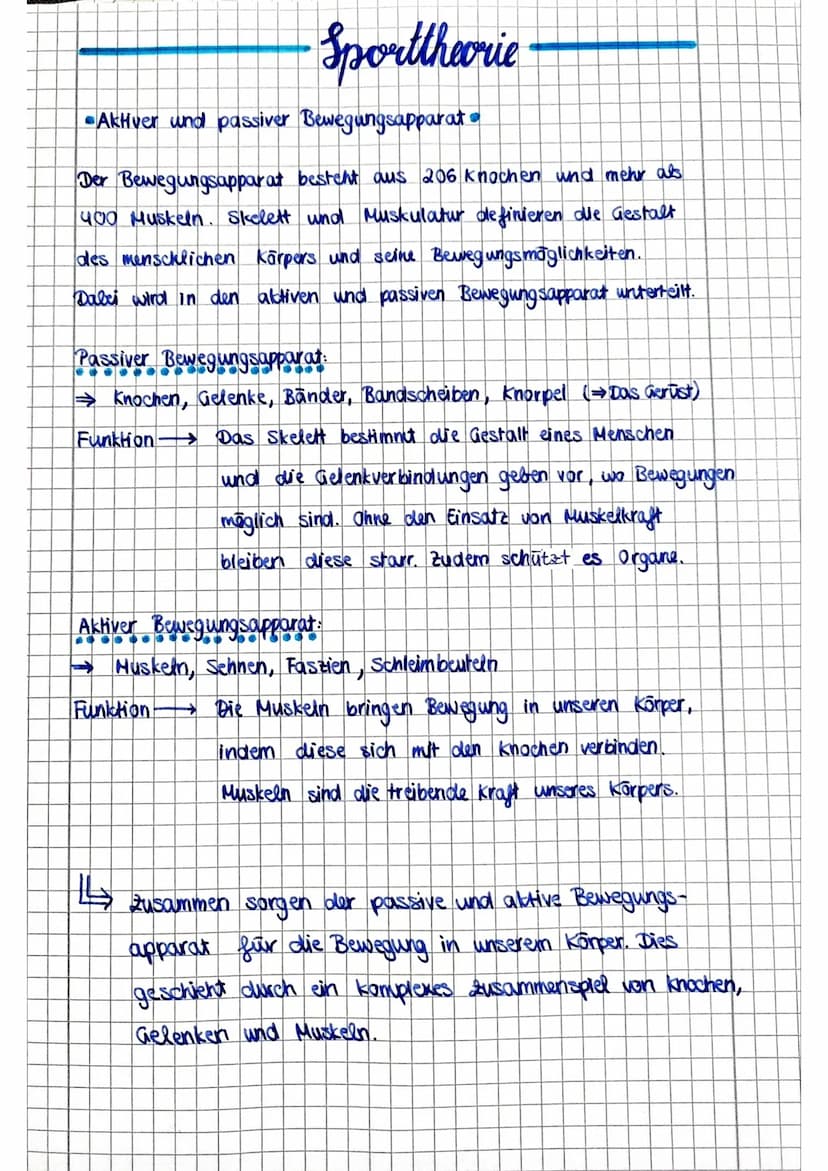 Sporttheorie
•Aktiver und passiver Bewegungsapparat•
Der Bewegungsapparat besteht aus 206 Knochen und mehr als
400 Muskeln. Skelett und Muskulatur definieren die Gestalt
des menschlichen Körpers und seine Bewegungsmöglichkeiten.
Dabei wird in den aktiven und passiven Bewegungsapparat unterteilt.
Passiver Bewegungsapparat:
⇒ Knochen, Gelenke, Bänder, Bandscheiben, Knorpel (⇒Das Gerüst)
Funktion → Das Skelett bestimmt die Gestalt eines Menschen
und die Gelenkverbindungen geben vor, wo Bewegungen
möglich sind. Ohne den Einsatz von Muskelkraft
bleiben diese starr. Zudem schützt es Organe.
Aktiver Bewegungsapparat:
→ Muskeln, Sehnen, Faszien, Schleimbeuteln
Funktion → Die Muskeln bringen Bewegung in unseren Körper,
indem diese sich mit den Knochen verbinden.
Muskeln sind die treibende Kraft unseres Körpers.
↳ Zusammen sorgen der passive und aktive Bewegungs-
apparat für die Bewegung in unserem Körper. Dies
geschieht durch ein komplexes Zusammenspiel von Knochen,
Gelenken und Muskeln.